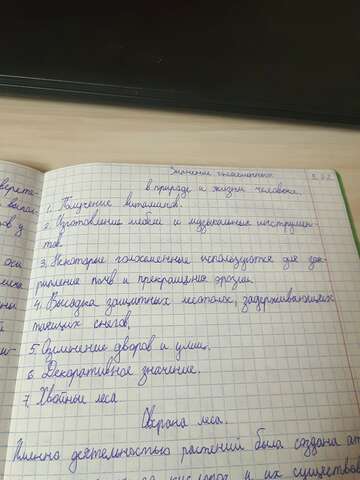 Значение голосеменных
в природе и жизни человека.
1. Получение витаминов.
2. Изготовление мебели и музыкальных инструмен-
тов.
3. Некоторые голосеменные используются для зак-
репление почв и прекращение эрозии.
4. Высадка защитных лесополос, задерживающих
тающих снегов.
5. Озеленение дворов и улиц.
6. Декоративное значение.
7. Хвойные леса
Охрана леса.
Именно деятельностью растений была создана ат
кислород и их существов